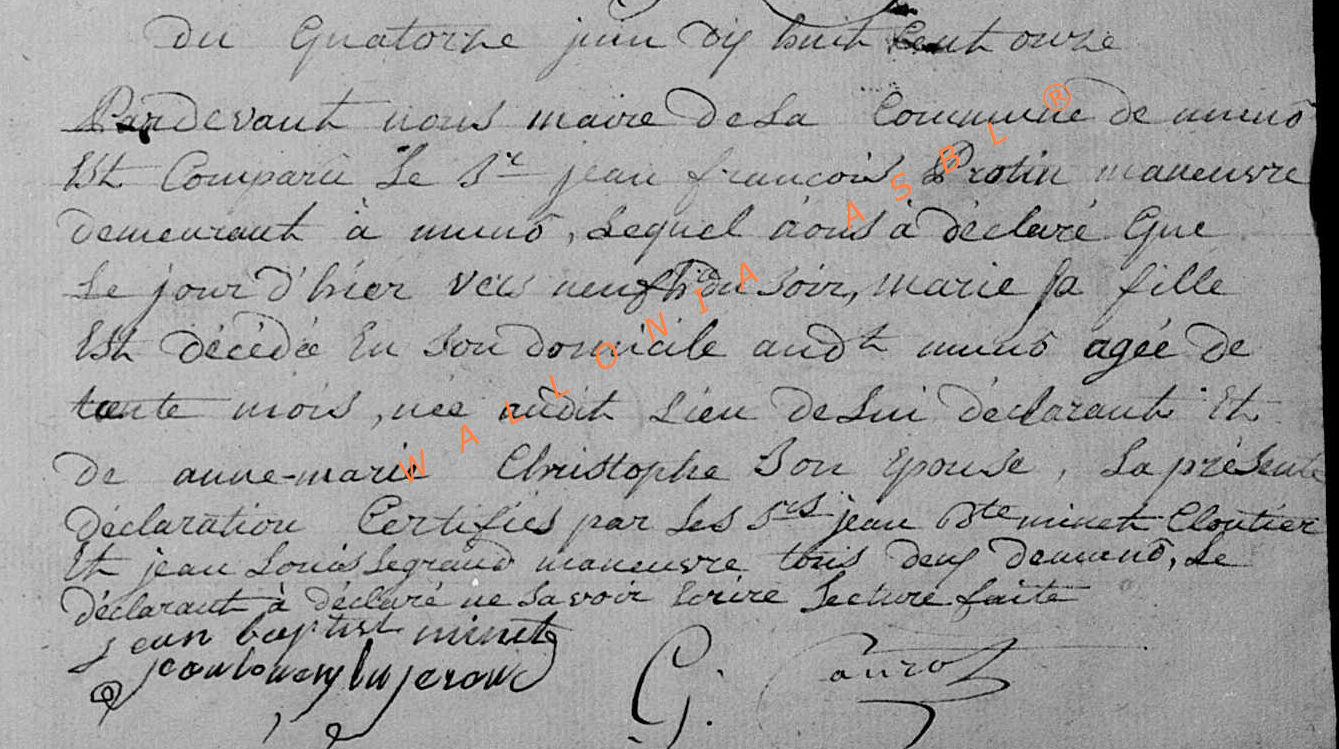 Du Quatorze juin dix huit Cent onze
Pardevant nous maire de la Commune de muno
Est Comparu Le Sr jean françois Protin maneuvre
demeurant à muno, Lequel nous à déclaré Que
Le jour d'hier vers neuf hres du Soir, marie Sa fille
Est décédée En Son domicile audt muno agée de
trente mois, née audit Lieu de Lui déclarant Et
de anne-marie Christophe Son Epouse, La présente
déclaration Certifiés par Les Srs jean Bte minet Cloutier
Et jean Louis Legrand maneuvre tous deux demuno, Le
déclarant à déclaré ne Savoir Ecrire Lecture faite
jean baptist minet
G.
WALLONIA ASBL ®